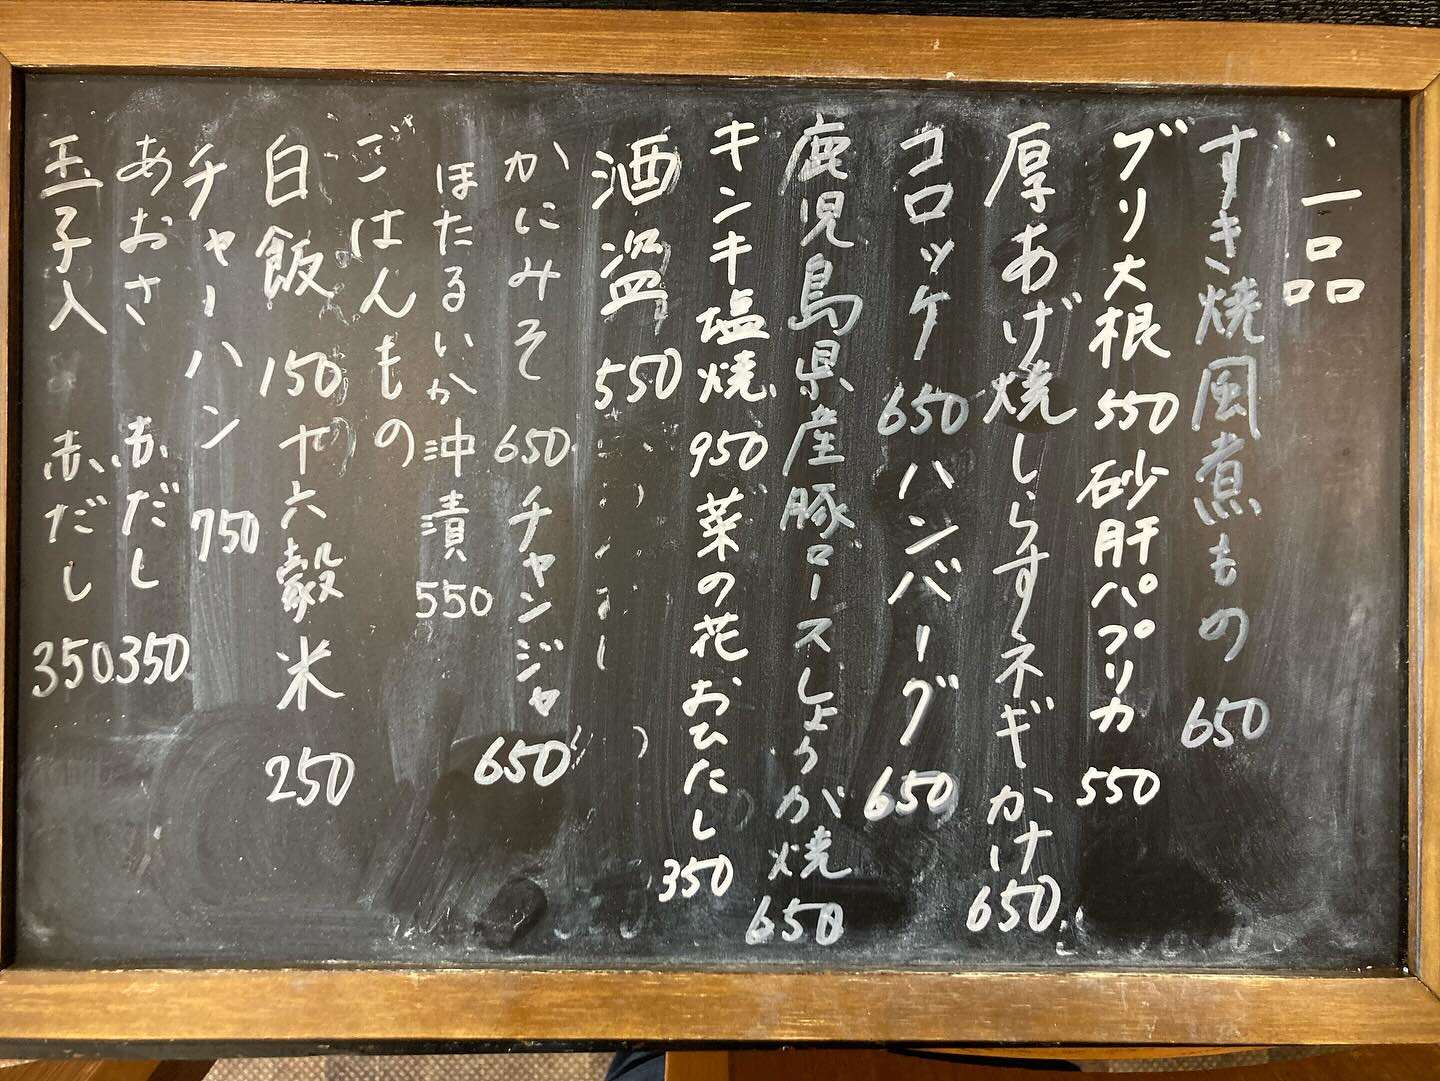 一品
すき焼風煮もの 650
ブリ大根 550 砂肝パプリカ 550
厚あげ焼しらすネギかけ 650
コロッケ 650 ハンバーグ 650
鹿児島県産豚ロースしょうが焼 650
キンキ塩焼 950 菜の花おひたし 350
酒盗 550
かにみそ 650 チャンジャ 650
ほたるいか沖漬 550
ごはんもの
白飯 150 十六穀米 250
チャーハン 750
あおさ 赤だし 350
玉子入 赤だし 350